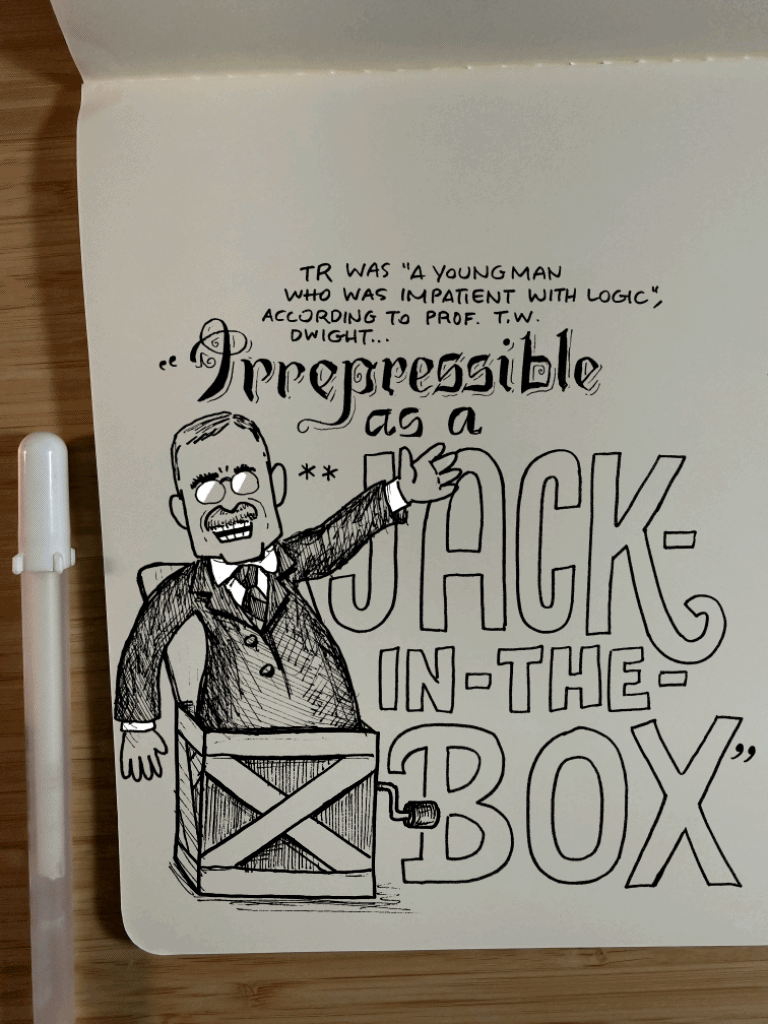 TR WAS "A YOUNG MAN
WHO WAS IMPATIENT WITH LOGIC",
ACCORDING TO PROF. T.W.
DWIGHT...
"Irrepressible
as a
** JACK-
IN-THE-
BOX"